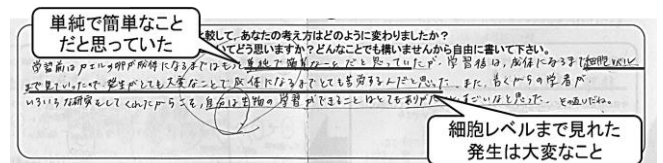 単純で簡単なこと
だと思っていた
較して、あなたの考え方はどのように変わりましたか？
いてどう思いますか？どんなことでも構いませんから自由に書いて下さい。
学習前はカエルの卵が成体になるまではもっと単純で簡単なことだと思っていたが、学習後は、成体になるまで細胞レベル
まで見ていったので、発生がとても大変なことで成体になるまでとても苦労するんだと思った。また、昔くからの学者が
いろいろな研究をしてくれたからこそ、自分は生物の学習ができることはとてもありがた すごいなと思った。その通りだね。
細胞レベルまで見れた
発生は大変なこと